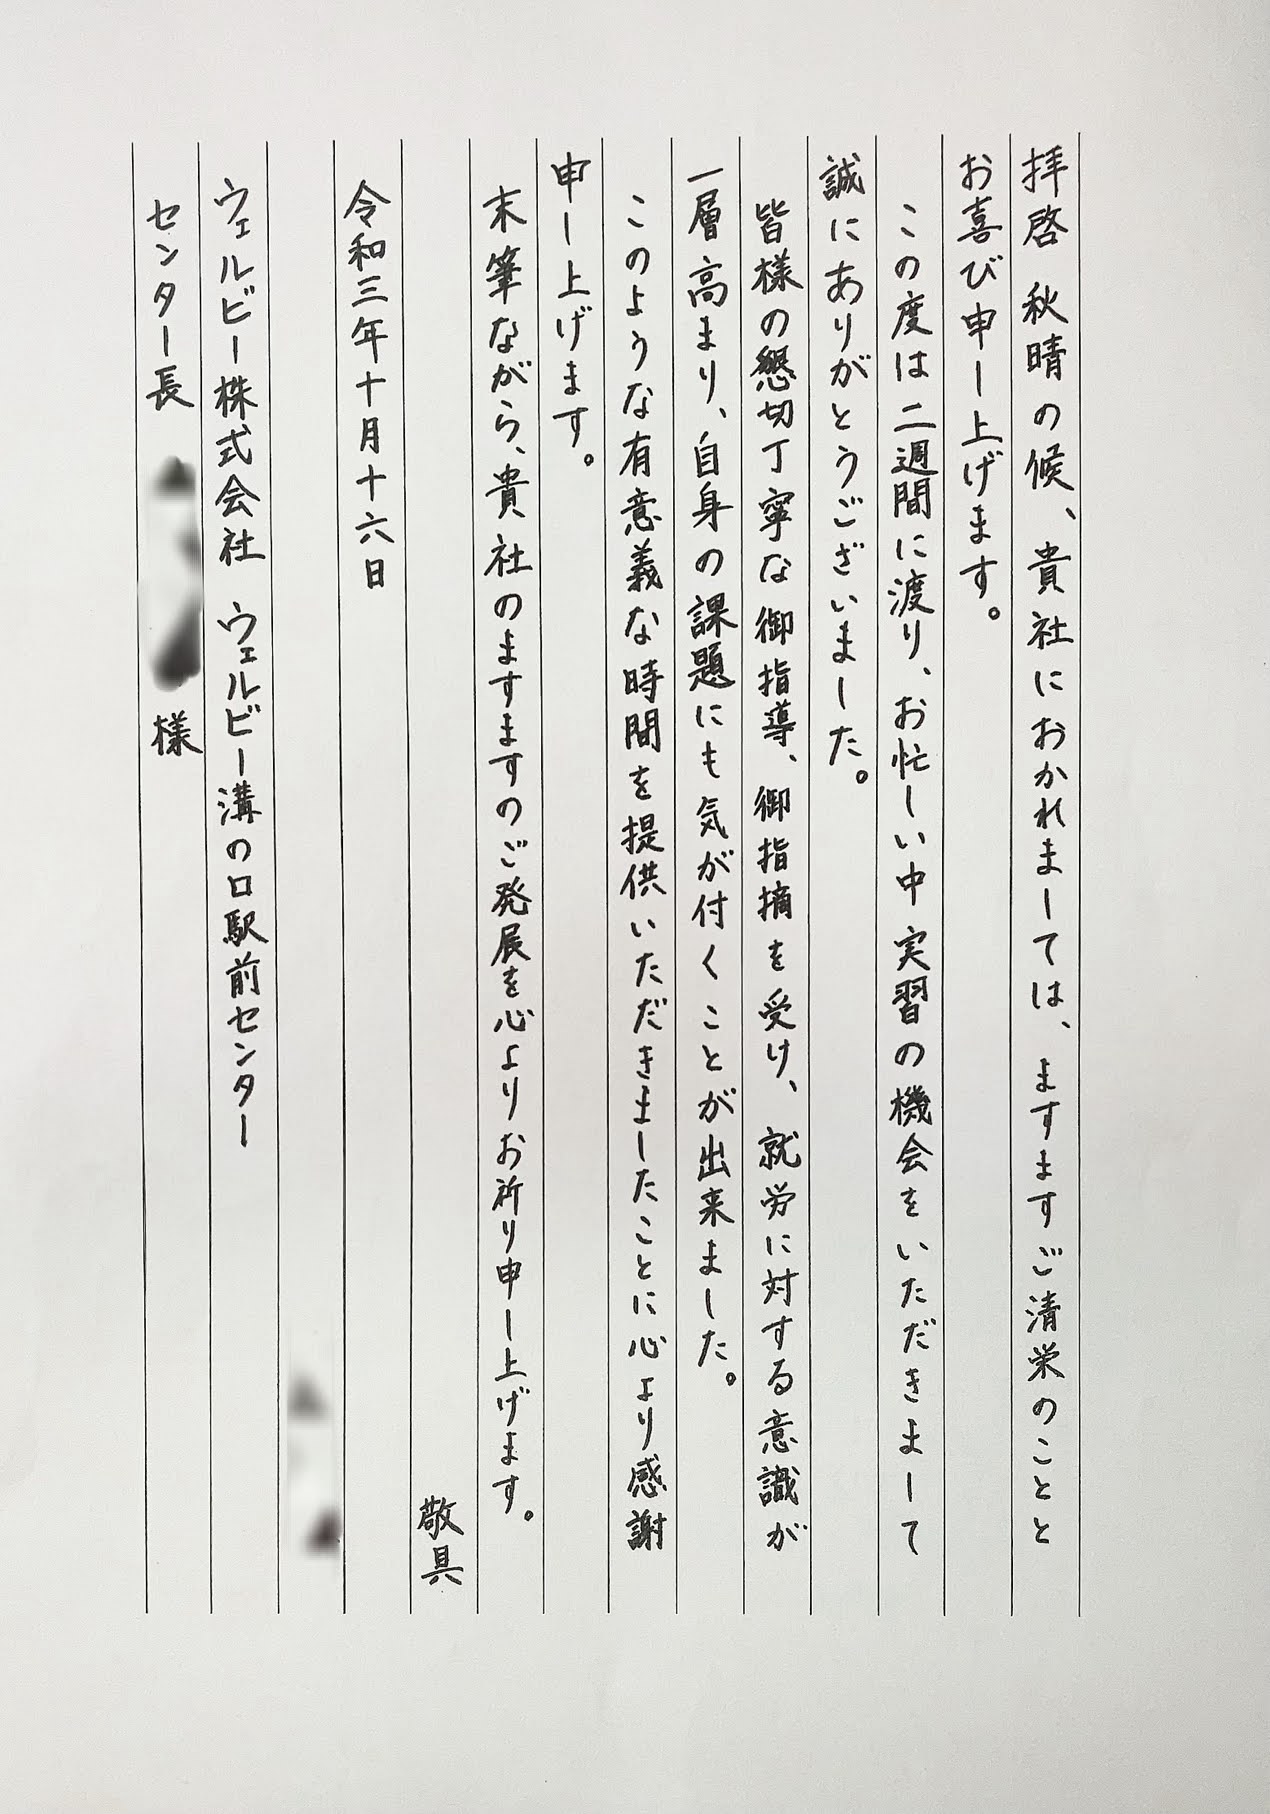 拝啓 秋晴の候、貴社におかれましては、ますますご清栄のことと
お喜び申し上げます。
この度は二週間に渡り、お忙しい中実習の機会をいただきまして
誠にありがとうございました。
皆様の懇切丁寧な御指導、御指摘を受け、就労に対する意識が
一層高まり、自身の課題にも気が付くことが出来ました。
このような有意義な時間を提供いただきましたことに心より感謝
申し上げます。
末筆ながら、貴社のますますのご発展を心よりお祈り申し上げます。
敬具
令和三年十月十六日
ウェルビー株式会社 ウェルビー溝の口駅前センター
センター長 様